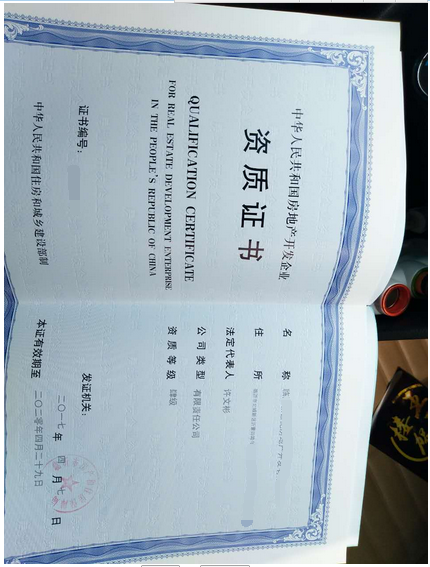 中华人民共和国房地产开发企业
资质证书
QUALIFICATION CERTIFICATE
FOR REAL ESTATE DEVELOPMENT ENTERPRISE
IN THE PEOPLE'S REPUBLIC OF CHINA
证书编号：
中华人民共和国住房和城乡建设部制
名称
住所
法定代表人 许文彬
公司类型 有限责任公司
资质等级 肆级
发证机关：
二〇一七年四月七日
本证有效期至 二〇二〇年四月二十九日